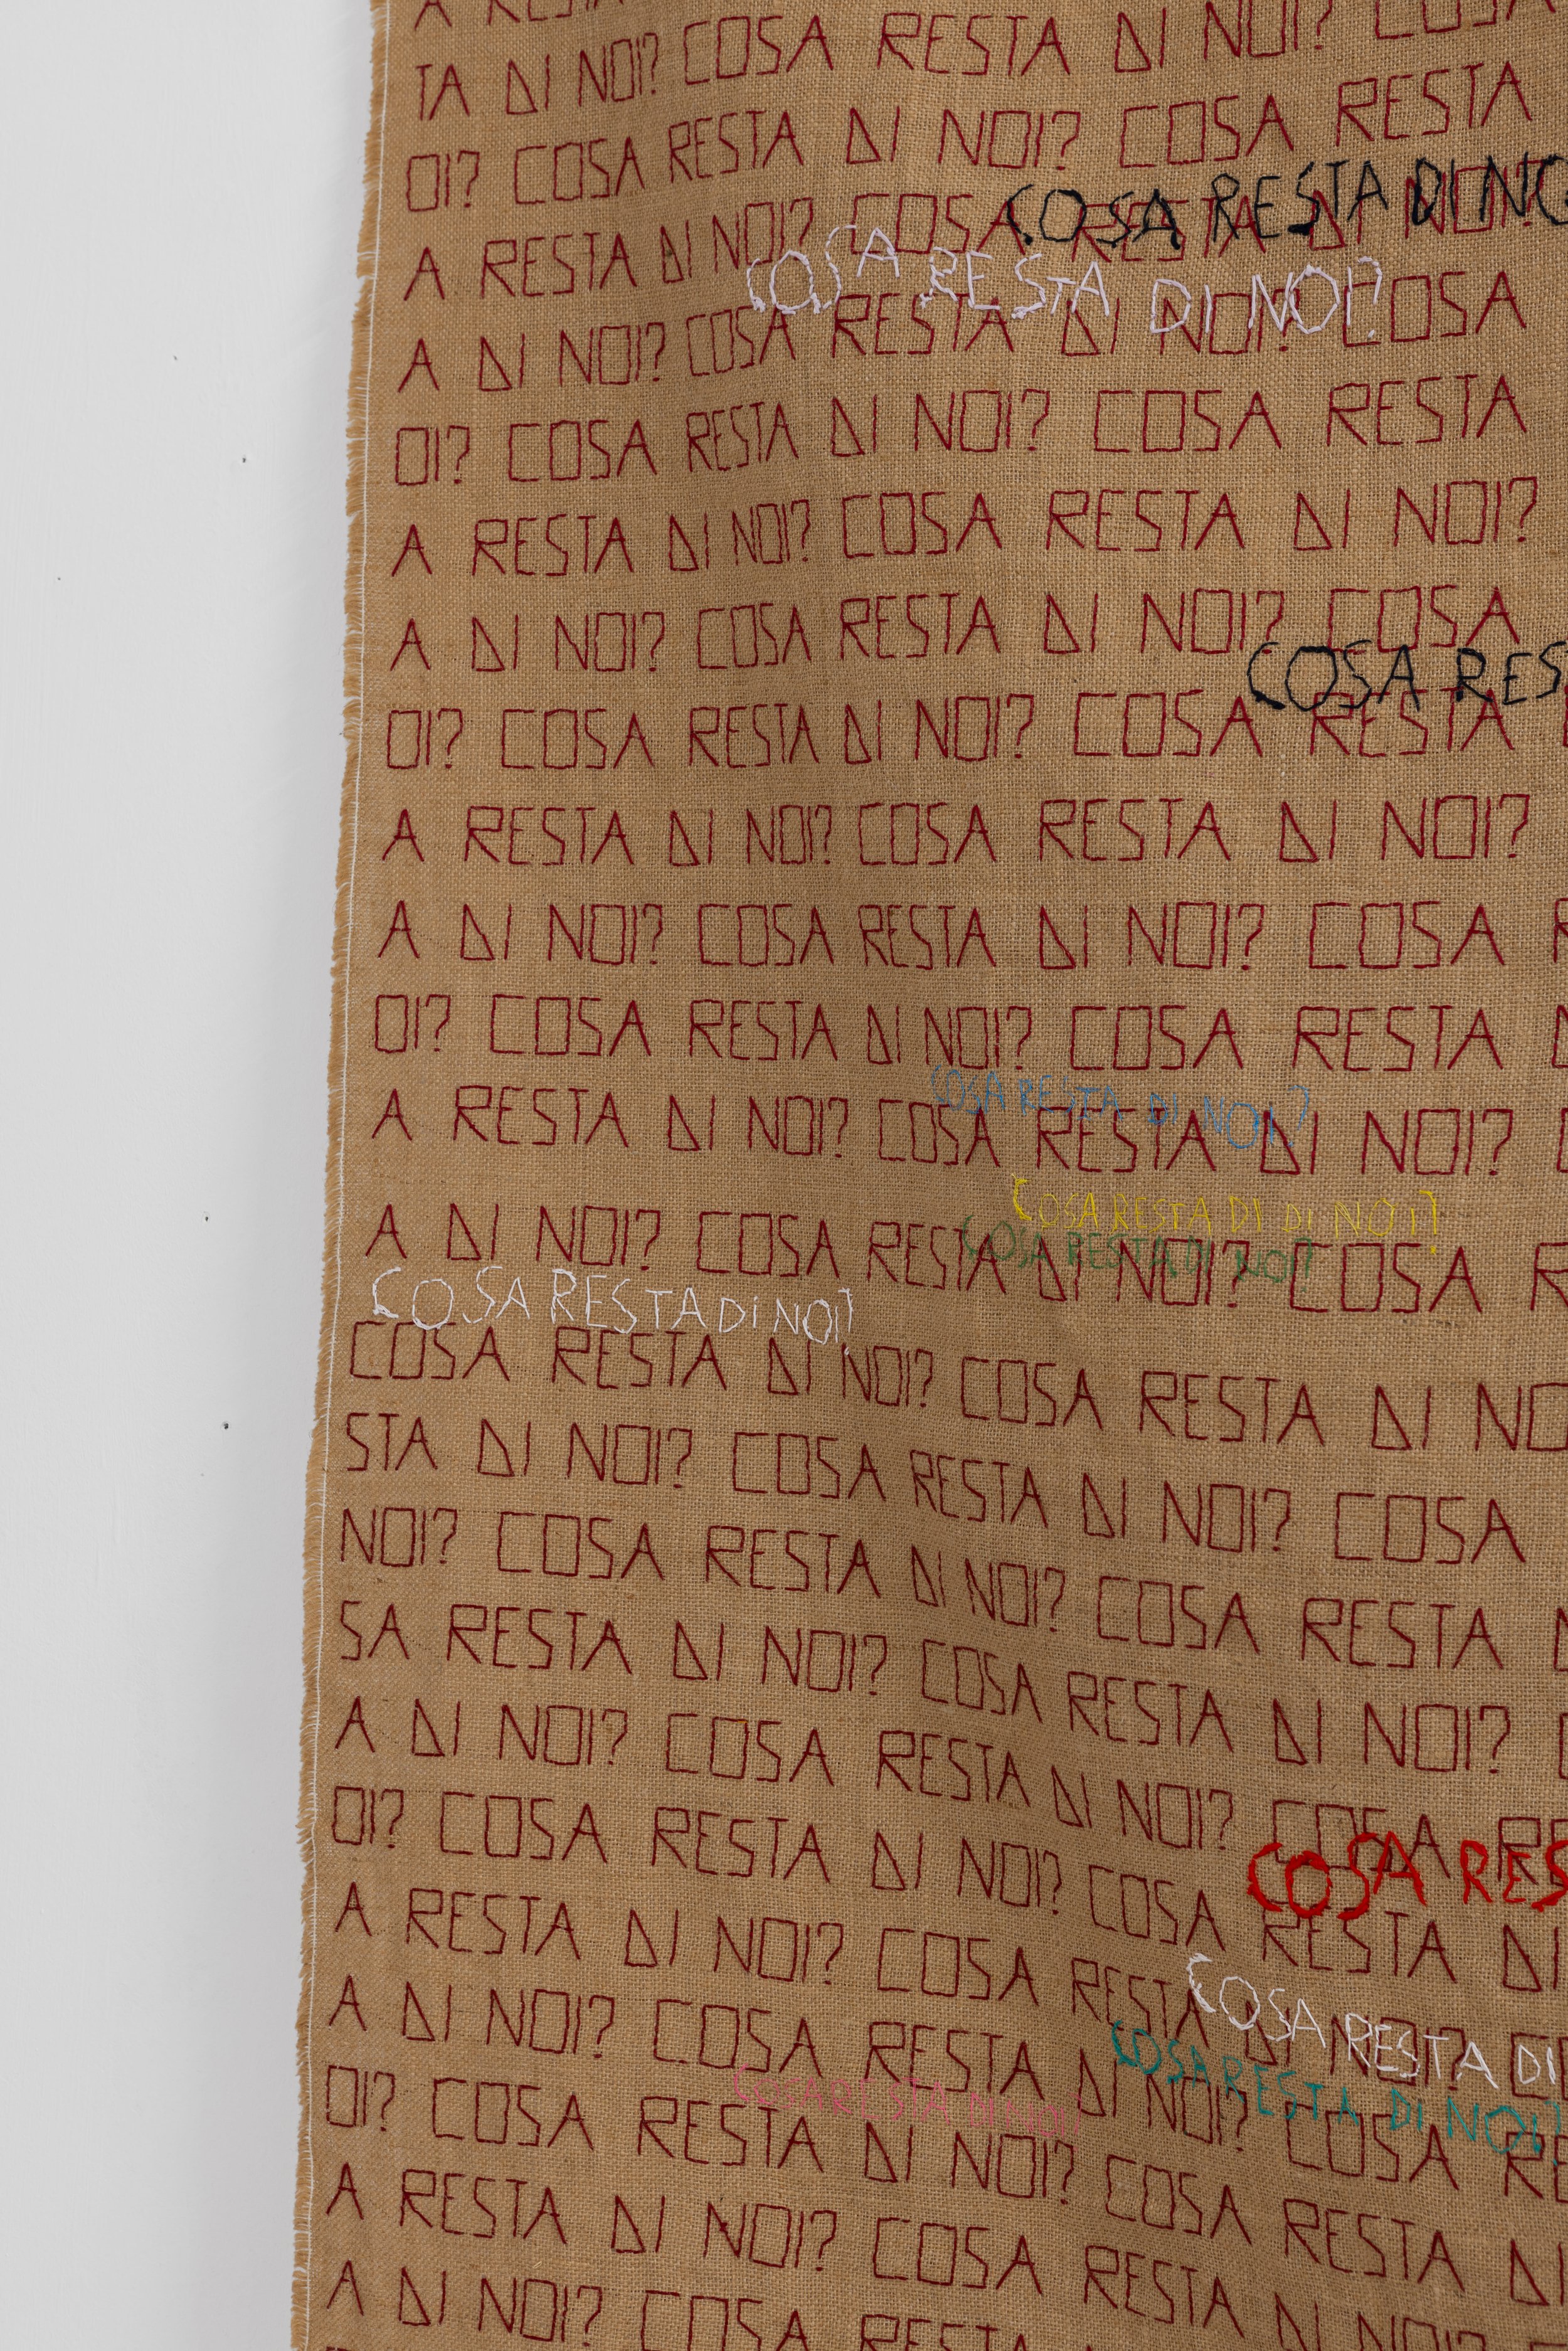 A RESTA
TA DI NOI? COSA RESTA DI NOI? COSA
OI? COSA RESTA DI NOI? COSA RESTA
COSA RESTA DI NO
A RESTA DI NOI? COSA RESTA DI NOI?
COSA RESTA DI NOI?
A DI NOI? COSA RESTA DI NOI? COSA
OI? COSA RESTA DI NOI? COSA RESTA
A RESTA DI NOI? COSA RESTA DI NOI?
A DI NOI? COSA RESTA DI NOI? COSA
COSA RES
OI? COSA RESTA DI NOI? COSA RESTA
A RESTA DI NOI? COSA RESTA DI NOI?
A DI NOI? COSA RESTA DI NOI? COSA R
OI? COSA RESTA DI NOI? COSA RESTA D
COSA RESTA DI NOI?
A RESTA DI NOI? COSA RESTA DI NOI? C
COSA RESTA DI DI NOI?
COSA RESTA DI NOI?
A DI NOI? COSA RESTA DI NOI? COSA R
COSA RESTA DI NOI?
COSA RESTA DI NOI? COSA RESTA DI NO
STA DI NOI? COSA RESTA DI NOI? COSA
NOI? COSA RESTA DI NOI? COSA RESTA D
SA RESTA DI NOI? COSA RESTA DI NOI? C
A DI NOI? COSA RESTA DI NOI? COSA RE
COSA RES
OI? COSA RESTA DI NOI? COSA RESTA DI
A RESTA DI NOI? COSA RESTA DI NOI? CO
COSA RESTA DI
COSA RESTA DI NOI?
A DI NOI? COSA RESTA DI NOI? COSA RE
COSA RESTA DI NOI?
OI? COSA RESTA DI NOI? COSA RESTA DI
A RESTA DI NOI? COSA RESTA DI NOI?
A DI NOI? COSA RESTA